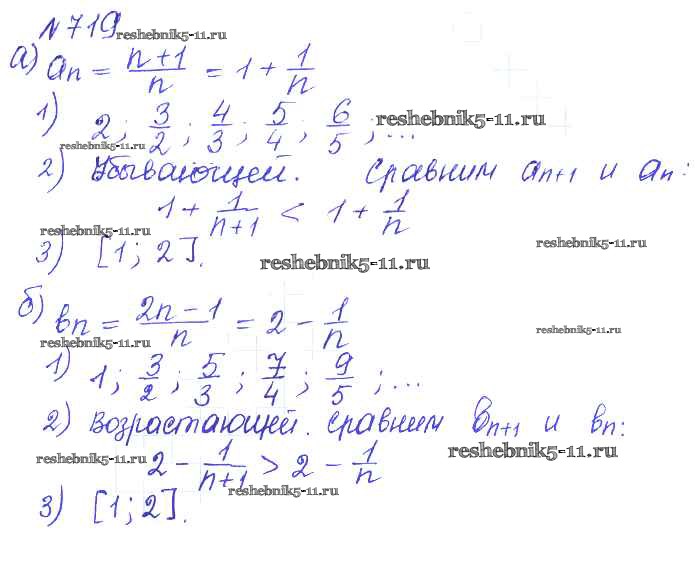 №719 reshebnik5-11.ru
а) aₙ = (n+1)/n = 1 + 1/n
1) 2; 3/2; 4/3; 5/4; 6/5; ... reshebnik5-11.ru
reshebnik5-11.ru
2) Убывающей. Сравним aₙ₊₁ и aₙ:
1 + 1/(n+1) < 1 + 1/n
reshebnik5-11.ru reshebnik5-11.ru
3) [1; 2]. reshebnik5-11.ru
б) вₙ = (2n-1)/n = 2 - 1/n reshebnik5-11.ru
reshebnik5-11.ru
1) 1; 3/2; 5/3; 7/4; 9/5; ...
2) Возрастающей. Сравним вₙ₊₁ и вₙ:
reshebnik5-11.ru 2 - 1/(n+1) > 2 - 1/n reshebnik5-11.ru
3) [1; 2]. reshebnik5-11.ru